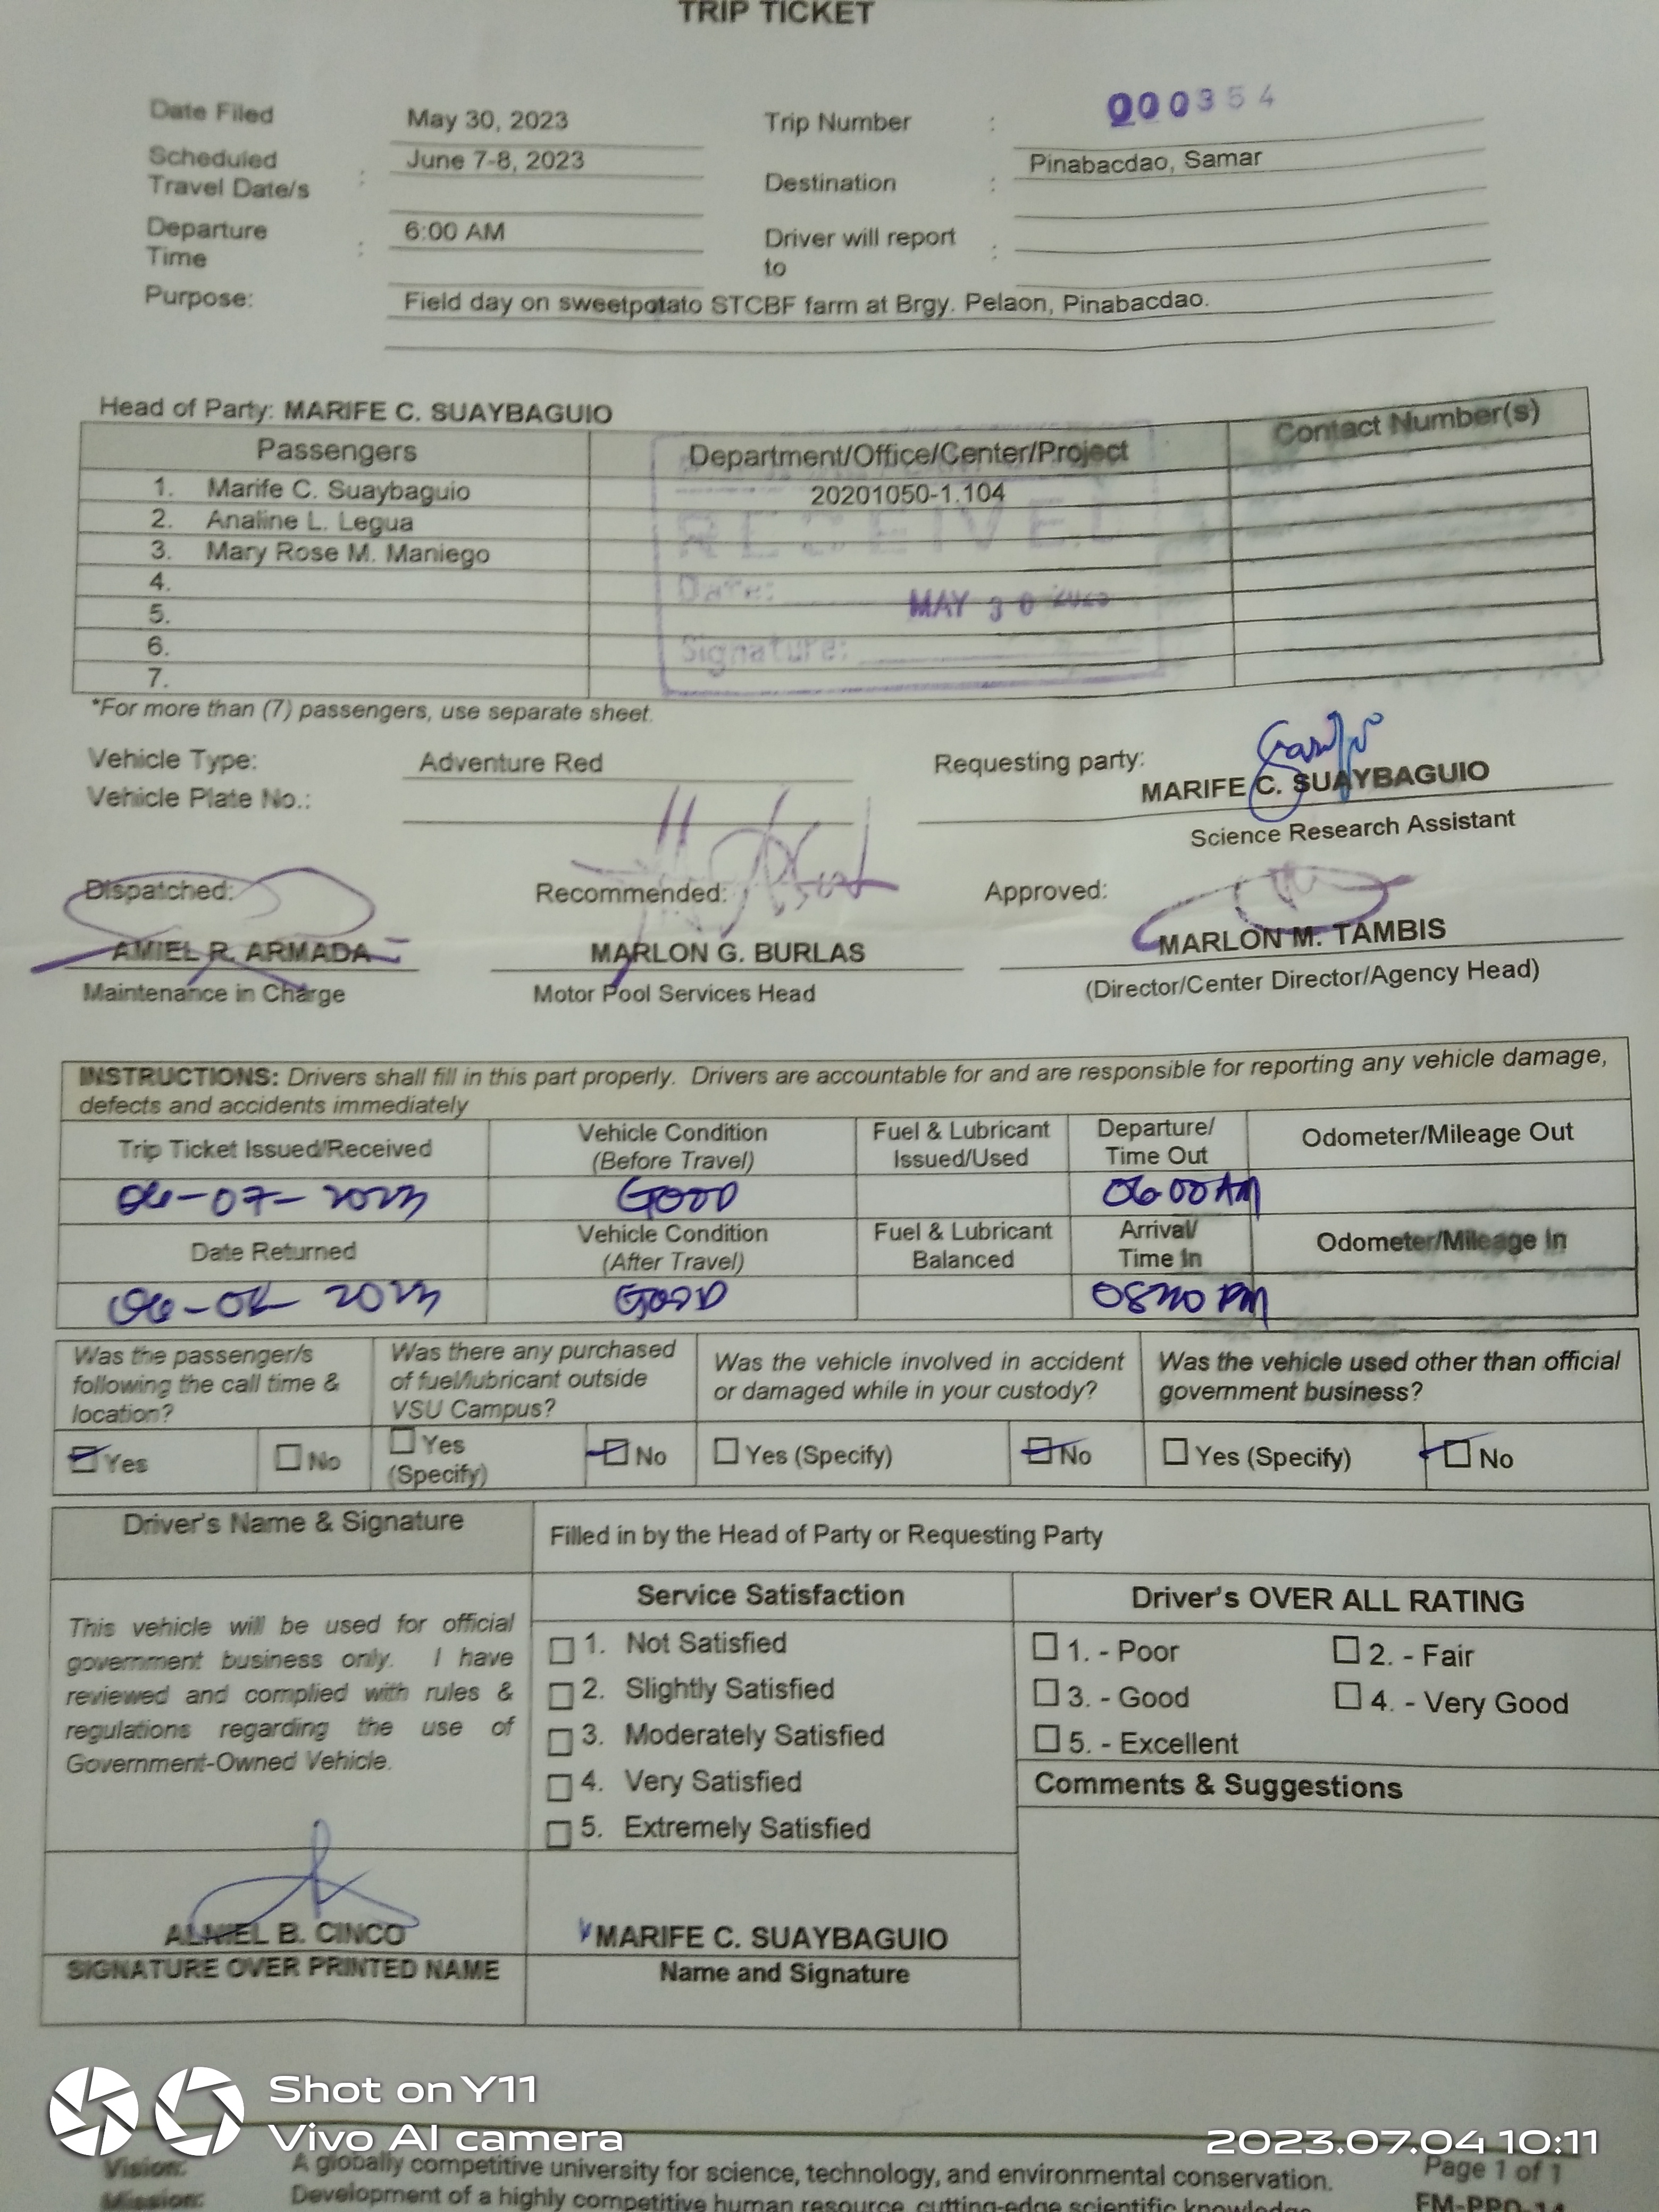 TRIP TICKET
Date Filed May 30, 2023 Trip Number : 000354
Scheduled Travel Date/s : June 7-8, 2023 Destination : Pinabacdao, Samar
Departure Time : 6:00 AM Driver will report to :
Purpose: Field day on sweetpotato STCBF farm at Brgy. Pelaon, Pinabacdao.
Head of Party: MARIFE C. SUAYBAGUIO
Passengers Department/Office/Center/Project Contact Number(s)
1. Marife C. Suaybaguio 20201050-1.104
2. Analine L. Legua
RECEIVED
3. Mary Rose M. Maniego
4.
Date: MAY 30 2023
5.
6.
Signature:
7.
*For more than (7) passengers, use separate sheet.
Vehicle Type: Adventure Red Requesting party:
Vehicle Plate No.: MARIFE C. SUAYBAGUIO
Science Research Assistant
Dispatched: Recommended: Approved:
AMIEL R. ARMADA MARLON G. BURLAS MARLON M. TAMBIS
Maintenance in Charge Motor Pool Services Head (Director/Center Director/Agency Head)
INSTRUCTIONS: Drivers shall fill in this part properly. Drivers are accountable for and are responsible for reporting any vehicle damage,
defects and accidents immediately
Trip Ticket Issued/Received Vehicle Condition (Before Travel) Fuel & Lubricant Issued/Used Departure/ Time Out Odometer/Mileage Out
06-07-2023 GOOD 06:00 AM
Date Returned Vehicle Condition (After Travel) Fuel & Lubricant Balanced Arrival/ Time In Odometer/Mileage In
2023 GOOD PM
Was the passenger/s following the call time & location?
Was there any purchased of fuel/lubricant outside VSU Campus?
Was the vehicle involved in accident or damaged while in your custody?
Was the vehicle used other than official government business?
Yes No Yes (Specify) No Yes (Specify) No Yes (Specify) No
Driver's Name & Signature Filled in by the Head of Party or Requesting Party
Service Satisfaction Driver's OVER ALL RATING
This vehicle will be used for official
government business only. I have
reviewed and complied with rules &
regulations regarding the use of
Government-Owned Vehicle.
1. Not Satisfied
2. Slightly Satisfied
3. Moderately Satisfied
4. Very Satisfied
5. Extremely Satisfied
1. - Poor 2. - Fair
3. - Good 4. - Very Good
5. - Excellent
Comments & Suggestions
ALNIEL B. CINCO MARIFE C. SUAYBAGUIO
SIGNATURE OVER PRINTED NAME Name and Signature
Shot on Y11
Vivo AI camera
2023.07.04 10:11
Vision: A globally competitive university for science, technology, and environmental conservation. Page 1 of 1
Mission: Development of a highly competitive human resource, cutting-edge scientific knowledge
FM-PPD-14